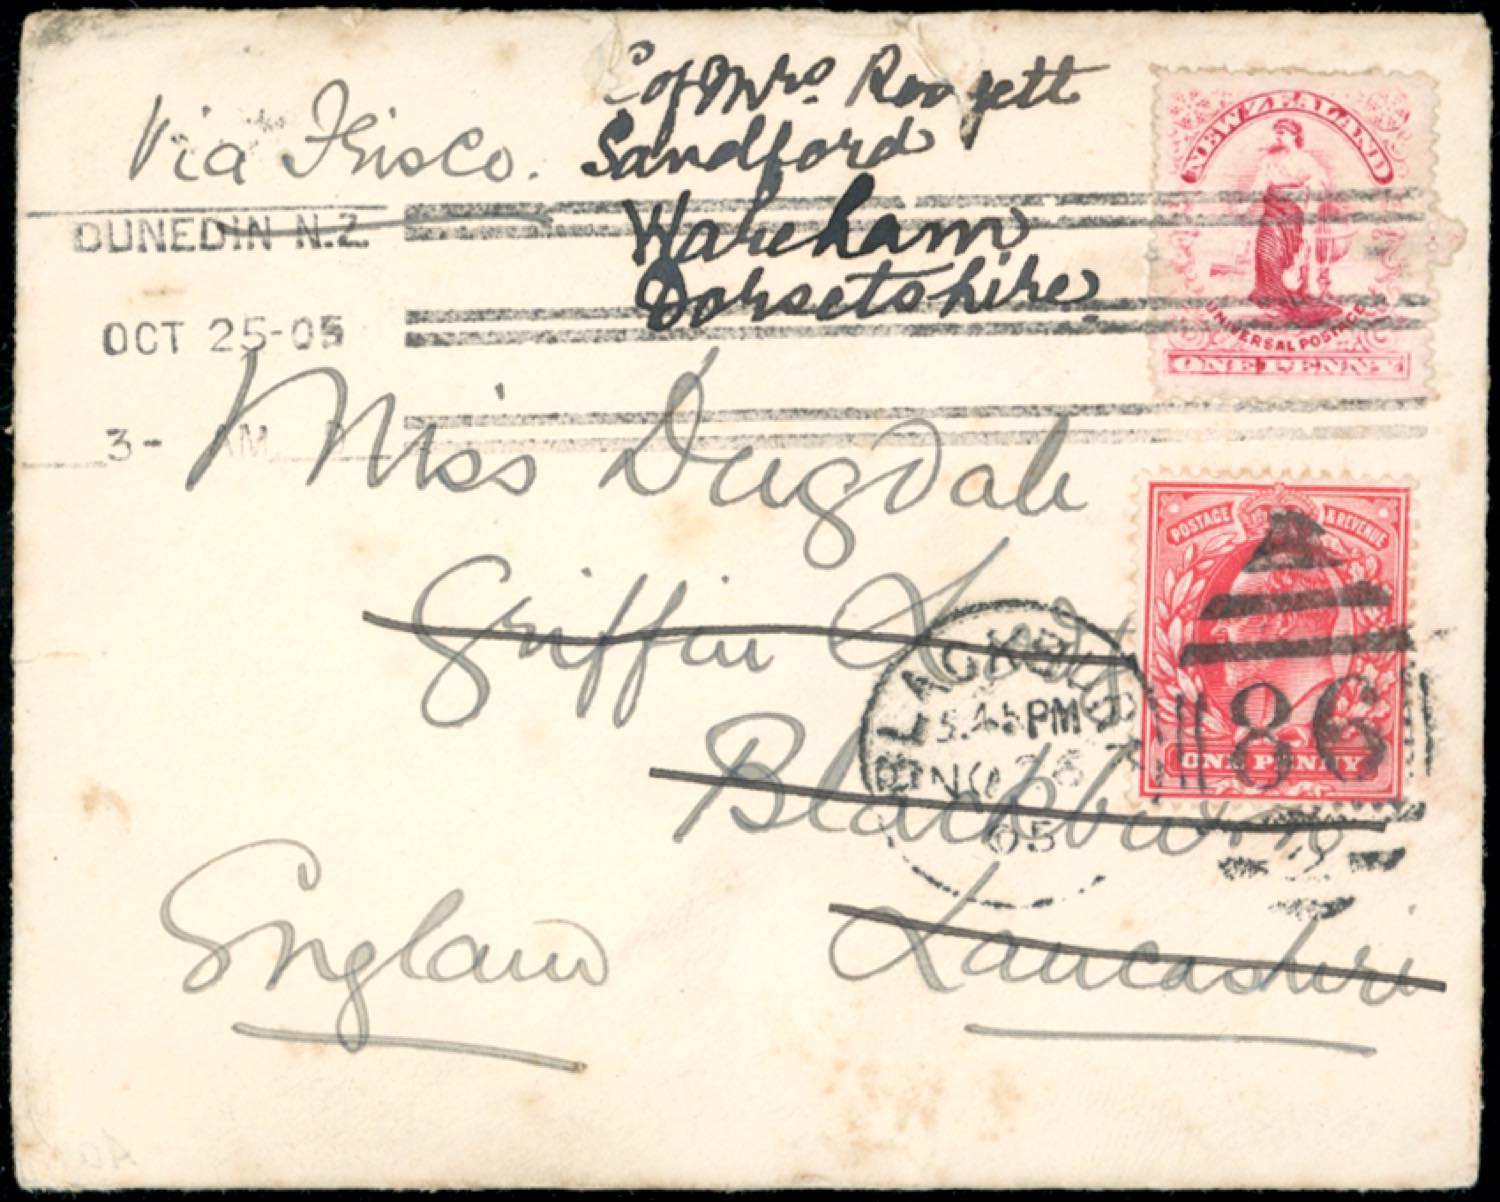 Via Frisco.
C/o Mrs.
Sandford
Wareham
Dorsetshire
NEW ZEALAND
UNIVERSAL POSTAGE
ONE PENNY
DUNEDIN N.Z.
OCT 25-05
3- AM
Miss Dugdale
Griffin
Blackburn
Lancashire
England
POSTAGE & REVENUE
ONE PENNY
BLACKBURN
5.45 PM
NO
05
86
2